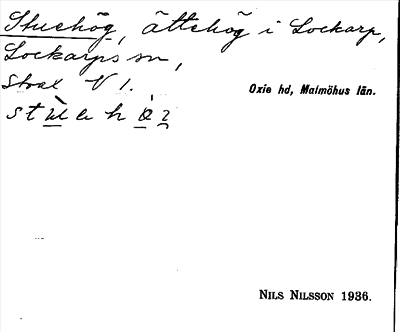 Stuehög, ättehög i Lockarp,
Lockarps sn,
Skal V 1.
Oxie hd, Malmöhus län.
NILS NILSSON 1936.